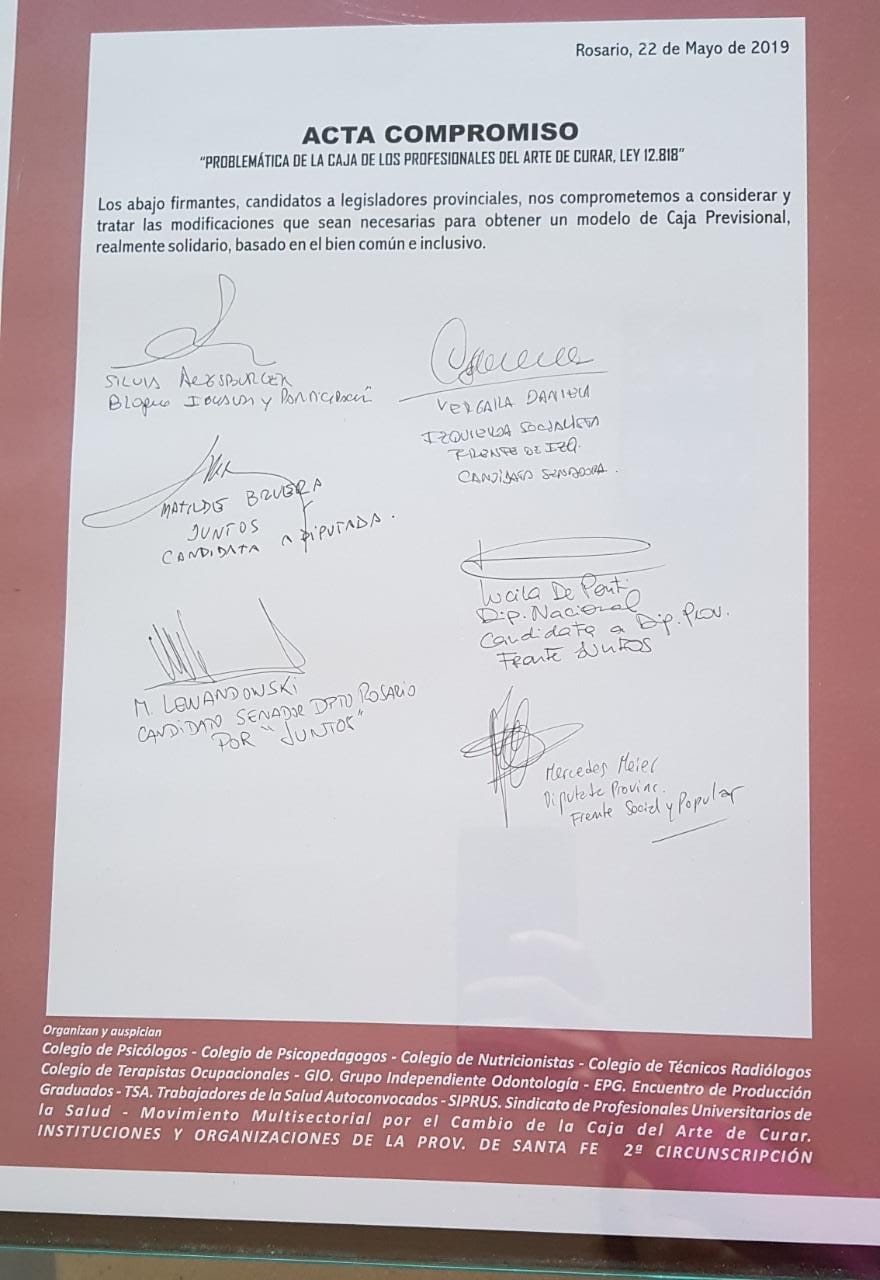 Rosario, 22 de Mayo de 2019
ACTA COMPROMISO
"PROBLEMÁTICA DE LA CAJA DE LOS PROFESIONALES DEL ARTE DE CURAR, LEY 12.818"
Los abajo firmantes, candidatos a legisladores provinciales, nos comprometemos a considerar y
tratar las modificaciones que sean necesarias para obtener un modelo de Caja Previsional,
realmente solidario, basado en el bien común e inclusivo.
SILVIA AUGSBURGER
Bloque Igualdad y Participación
VERGARA DANIELA
IZQUIERDA SOCIALISTA
FRENTE DE IZQ.
CANDIDATA SENADORA.
MATILDE BRUERA
JUNTOS
CANDIDATA A DIPUTADA.
Lucila De Ponti
Dip. Nacional
Candidata a Dip. Prov.
Frente Juntos
M. LEWANDOWSKI
CANDIDATO SENADOR DPTO ROSARIO
POR "JUNTOS"
Mercedes Meier
Diputada Provinc.
Frente Social y Popular
Organizan y auspician
Colegio de Psicólogos - Colegio de Psicopedagogos - Colegio de Nutricionistas - Colegio de Técnicos Radiólogos
Colegio de Terapistas Ocupacionales - GIO. Grupo Independiente Odontología - EPG. Encuentro de Producción
Graduados - TSA. Trabajadores de la Salud Autoconvocados - SIPRUS. Sindicato de Profesionales Universitarios de
la Salud - Movimiento Multisectorial por el Cambio de la Caja del Arte de Curar.
INSTITUCIONES Y ORGANIZACIONES DE LA PROV. DE SANTA FE 2ª CIRCUNSCRIPCIÓN